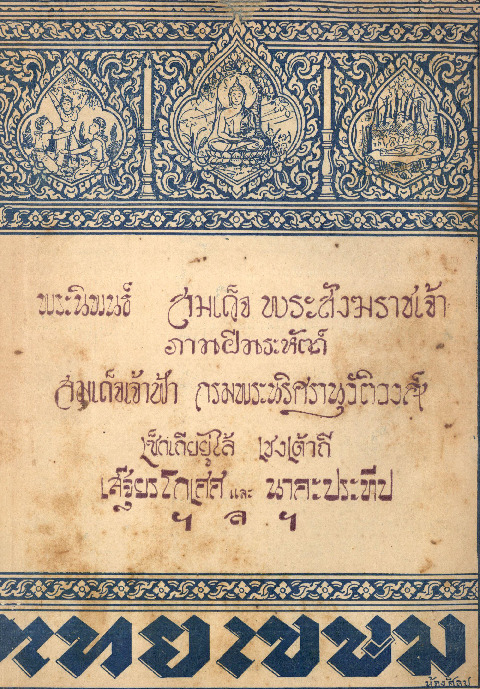 พระนิพนธ์ สมเด็จ พระสังฆราชเจ้า
ภาพฝีพระหัตถ์
สมเด็จเจ้าฟ้า กรมพระนริศรานุวัติวงศ์
เซ็ตเตียยู่ไล้ เซงเต้าลี่
เสฐียรโกเศศ และ นาคะประทีป
ฯ ล ฯ
ไทยเขษม